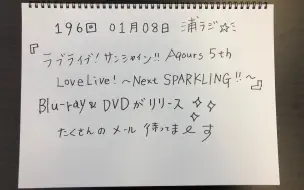 196回 01月08日 浦ラジ☆ミ
『ラブライブ!サンシャイン!! Aqours 5th
LoveLive! ～Next SPARKLING!!～』
Blu-ray & DVDがリリース
たくさんの メール 待ってま～す